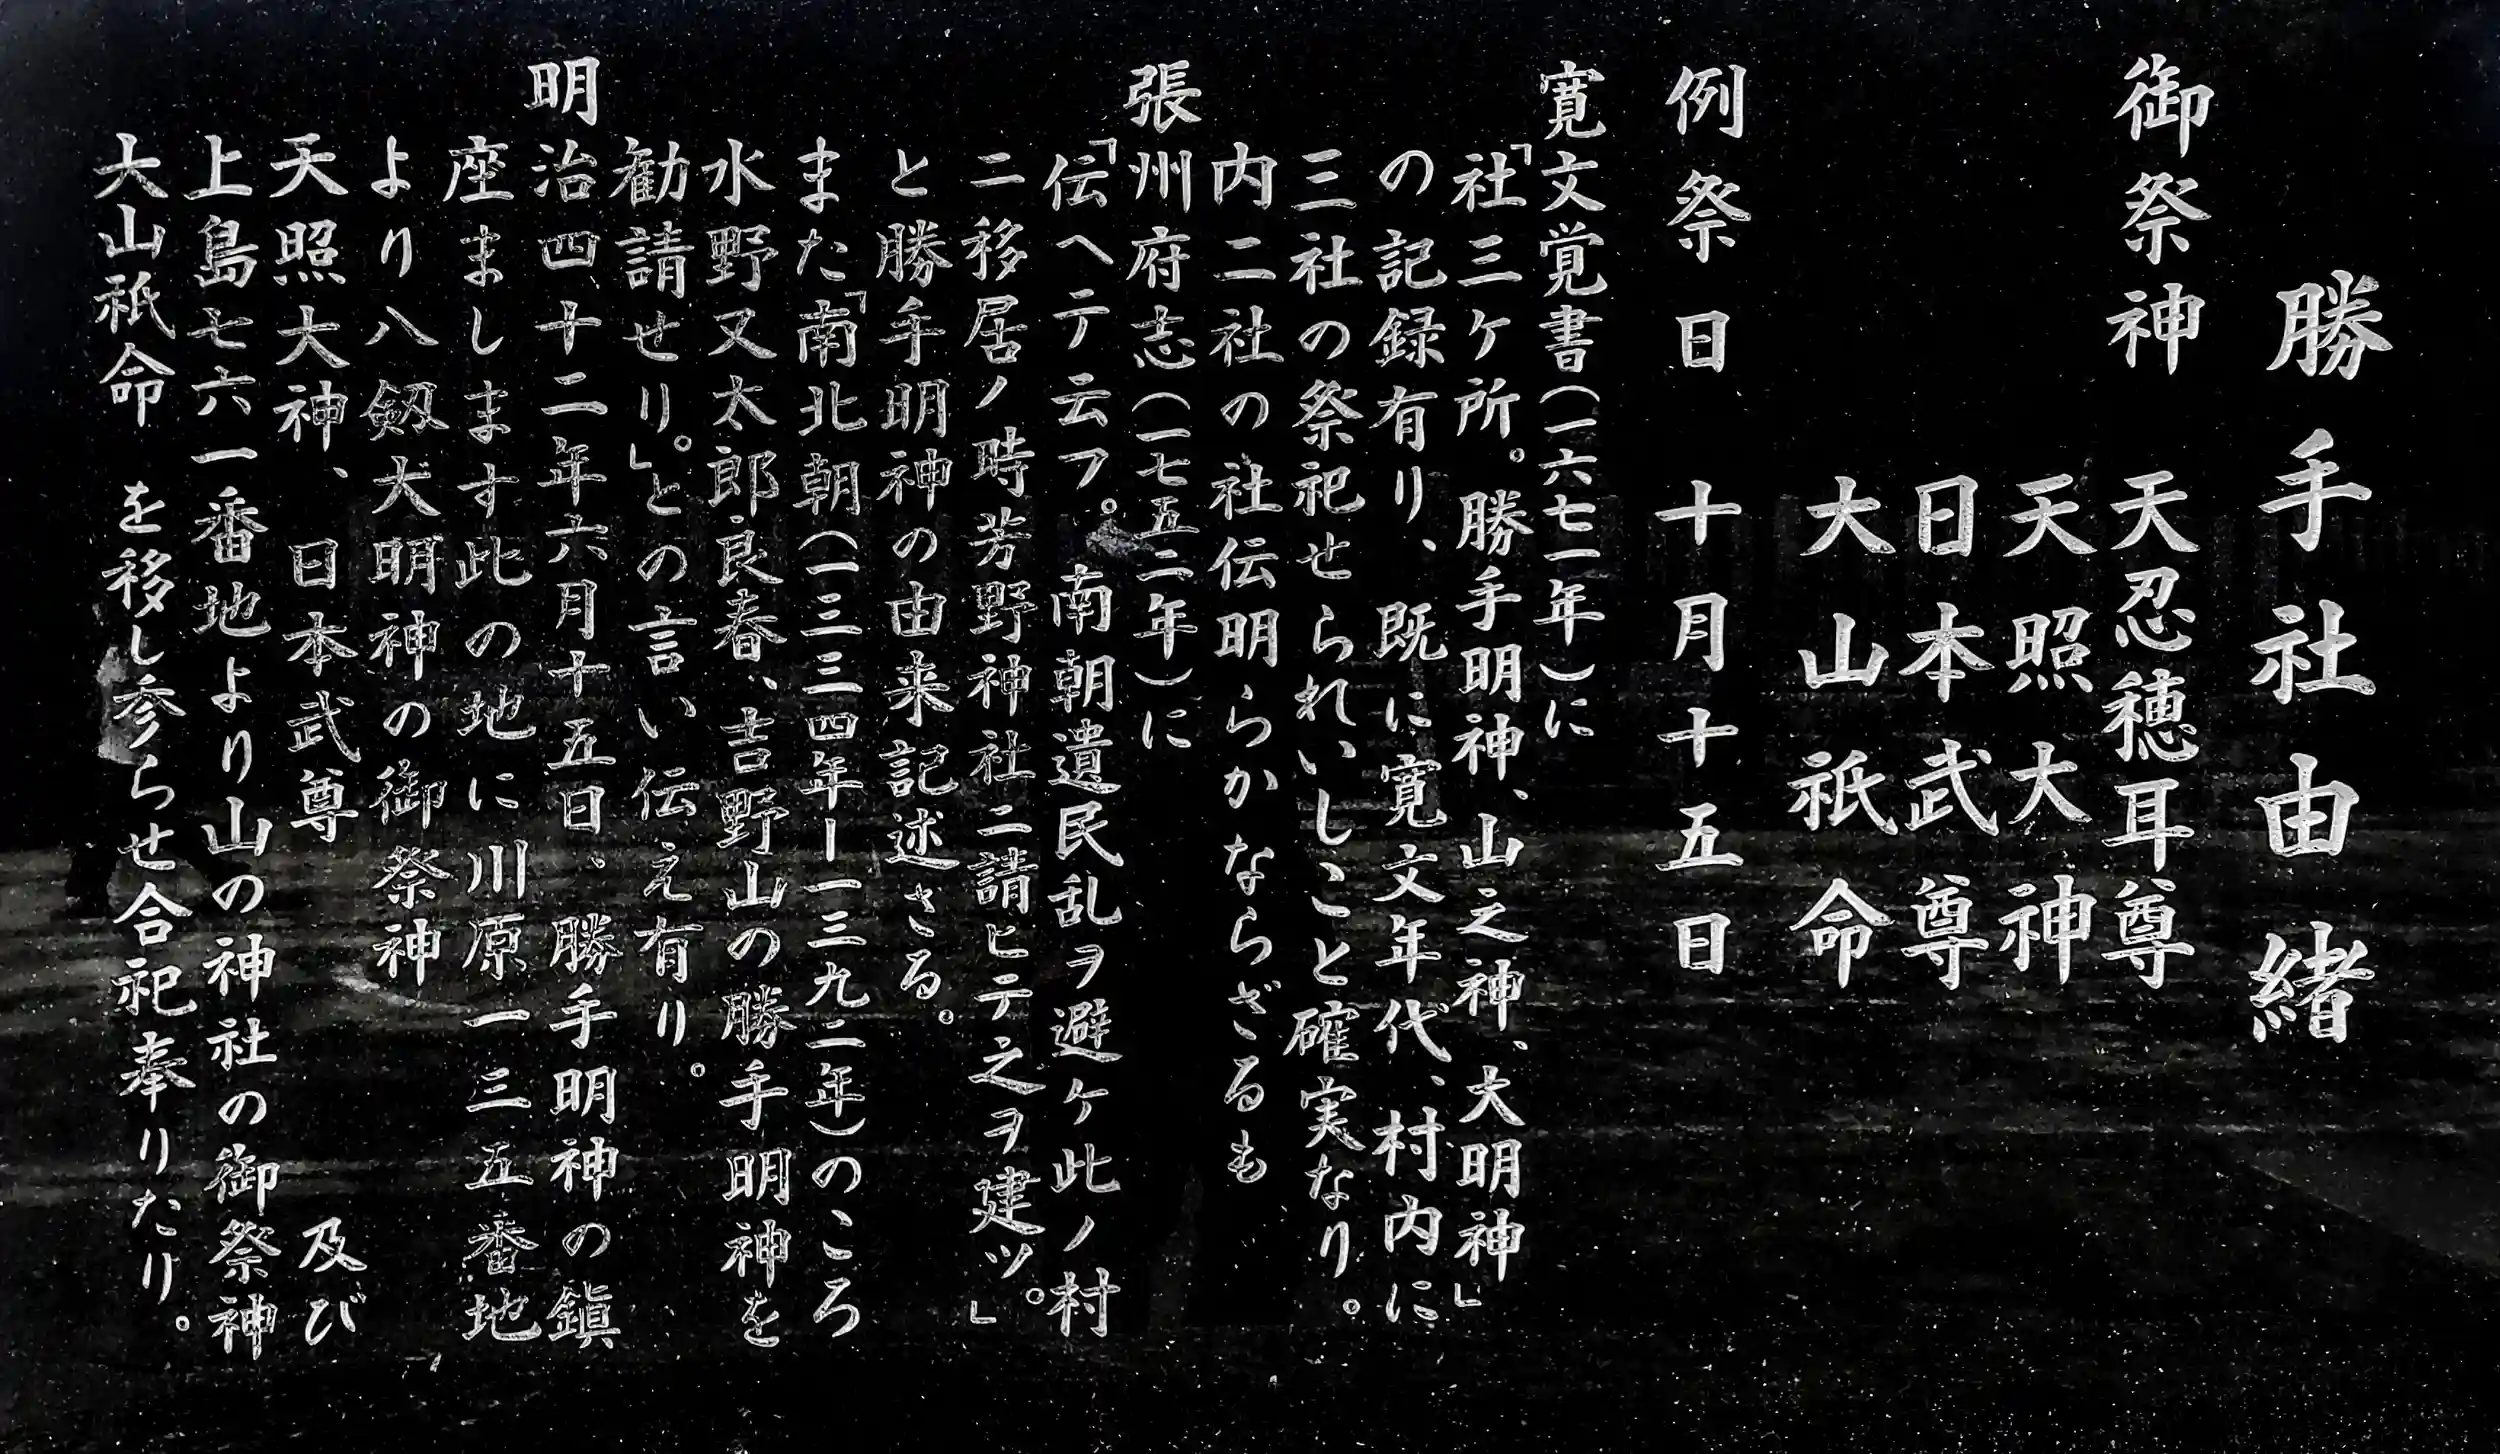 勝手社由緒
御祭神 天忍穂耳尊
天照大神
日本武尊
大山祇命
例祭日 十月十五日
寛文覚書(一六七一年)に
「社三ケ所。勝手明神、山之神、大明神」
の記録有り、既に寛文年代、村内に
三社の祭祀せられいしこと確実なり。
内二社の社伝明らかならざるも
張州府志(一七五二年)に
「伝ヘテ云フ。南朝遺民乱ヲ避ケ此ノ村
ニ移居ノ時芳野神社ニ請ヒテ之ヲ建ツ。」
と勝手明神の由来記述さる。
また「南北朝(一三三四年ー一三九二年)のころ
水野又太郎良春、吉野山の勝手明神を
勧請せり。」との言い伝え有り。
明治四十二年六月十五日、勝手明神の鎮
座まします此の地に川原一三五番地
より八剱大明神の御祭神
天照大神、日本武尊 及び
上島七六一番地より山の神社の御祭神
大山祇命 を移し参らせ合祀奉りたり。